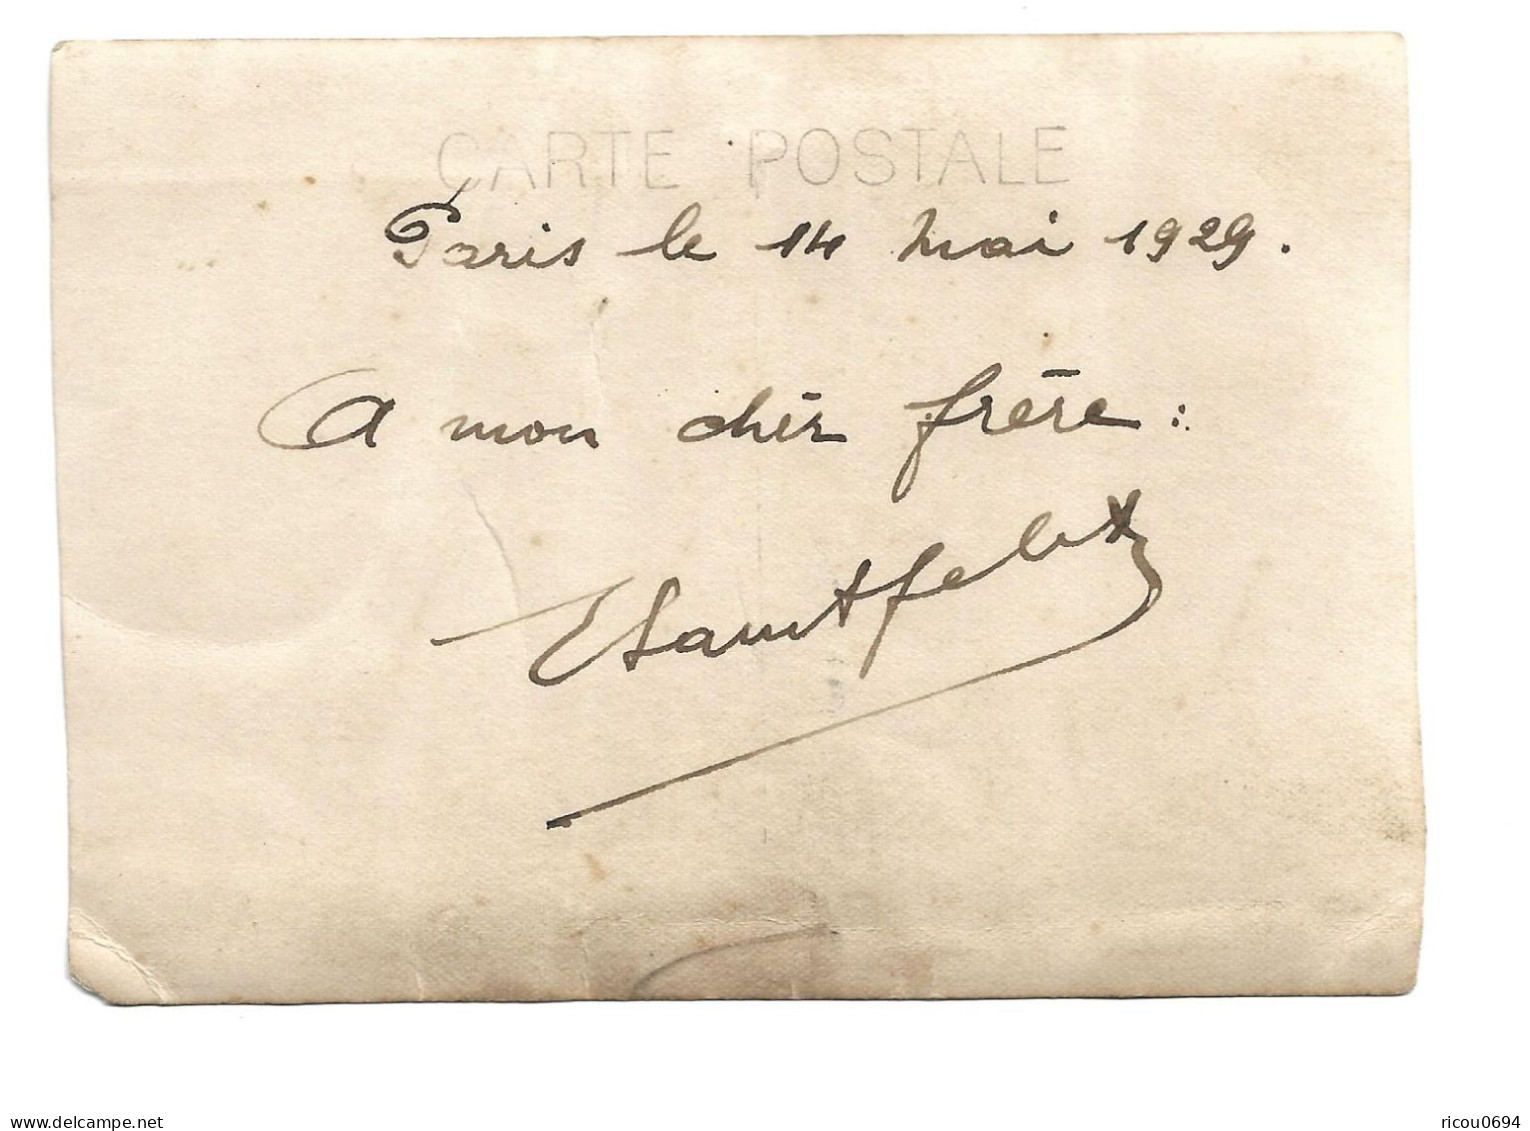 CARTE POSTALE
Paris le 14 mai 1929.
A mon chèr frère :
www.delcampe.net
ricou0694